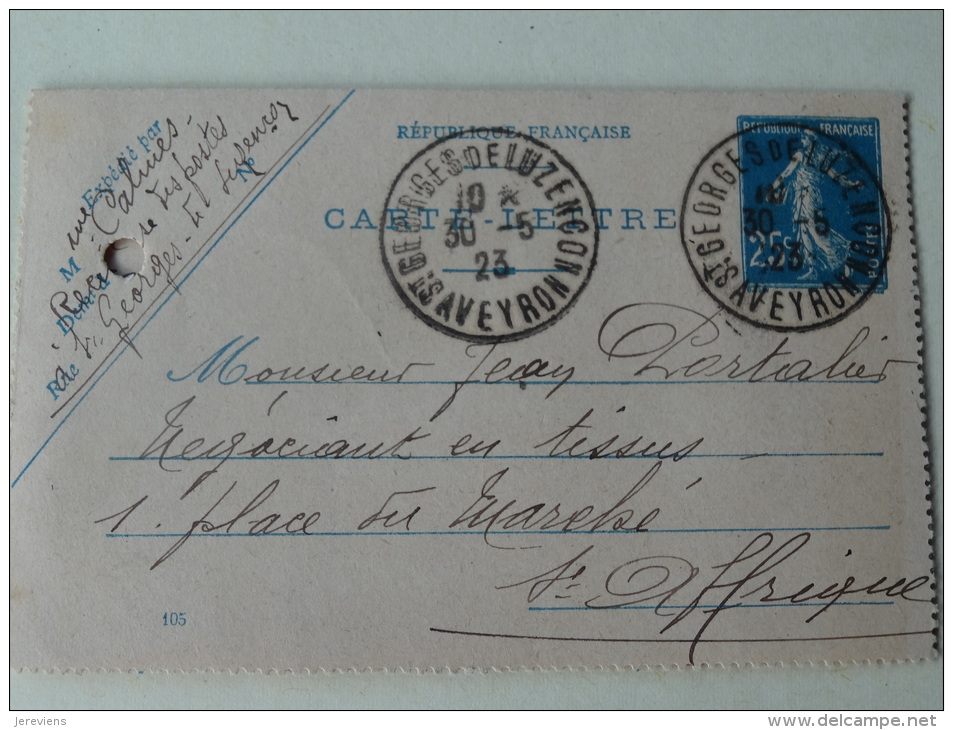 RÉPUBLIQUE FRANÇAISE
CARTE-LETTRE
REPUBLIQUE FRANÇAISE
25c
POSTES
ST GEORGES DE LUZENCON
10 *
30 -5
23
AVEYRON
ST GEORGES DE LUZENCON
10
30 -5
23
AVEYRON
Expédié par
M
Dem
Rue
No
Calmes
des postes
St Georges
Monsieur Jean Portalier
Négociant en tissus
1. place du Marché
St Affrique
105
jereviens
www.delcampe.net